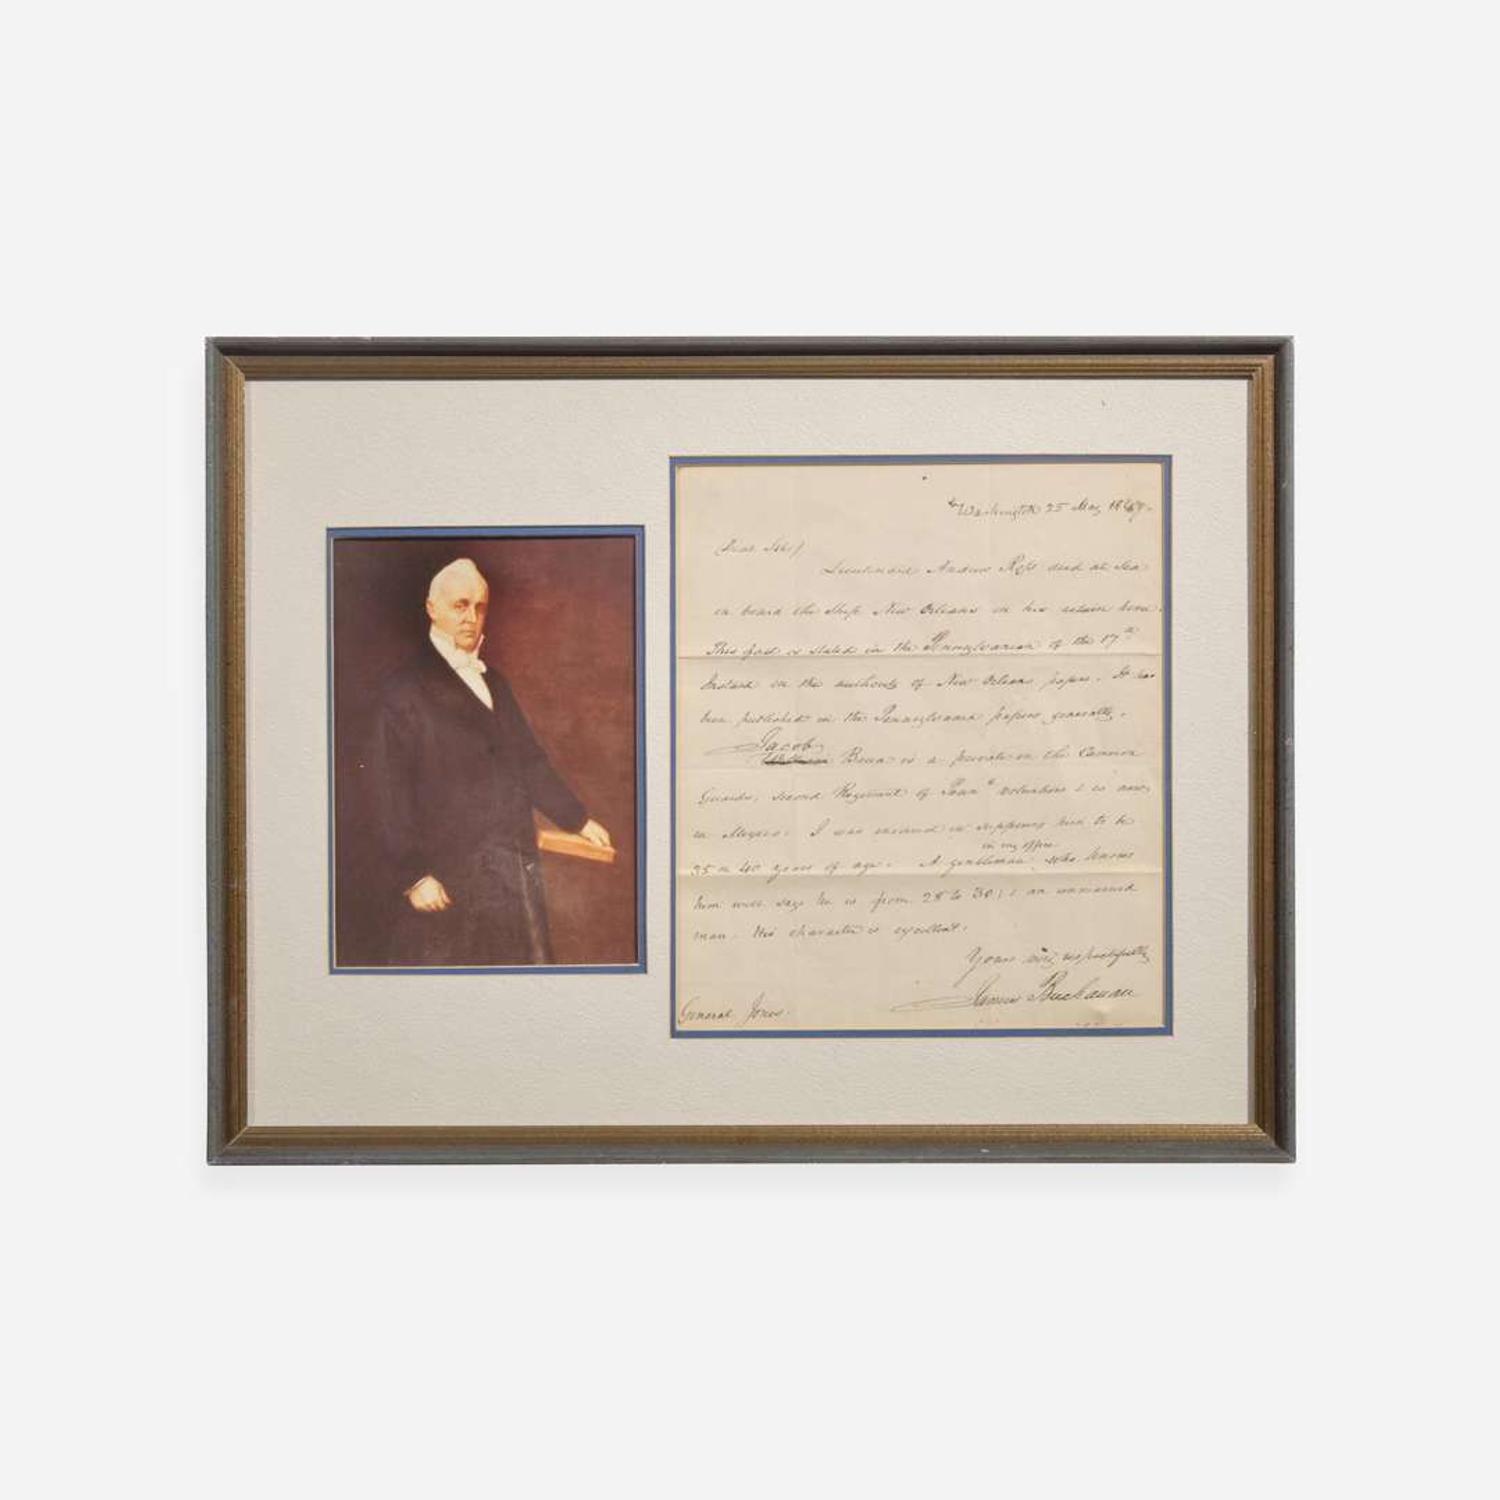 Washington 25 May 1847.
Dear Sir/
Lieutenant Andrew Ross died at Sea
on board the Ship New Orleans on his return home.
This fact is stated in the Pennsylvanian of the 17th
Instant on the authority of New Orleans papers. It has
been published in the Pennsylvania papers generally.
Jacob
is a private in the Cameron
Guards, second Regiment of Penna volunteers & is now
in Mexico. I was incorrect in supposing him to be
35 or 40 years of age. A gentleman who knows
in my office
him well says he is from 28 to 30; & an unmarried
man. His character is excellent.
Yours very respectfully
James Buchanan
General Jones.